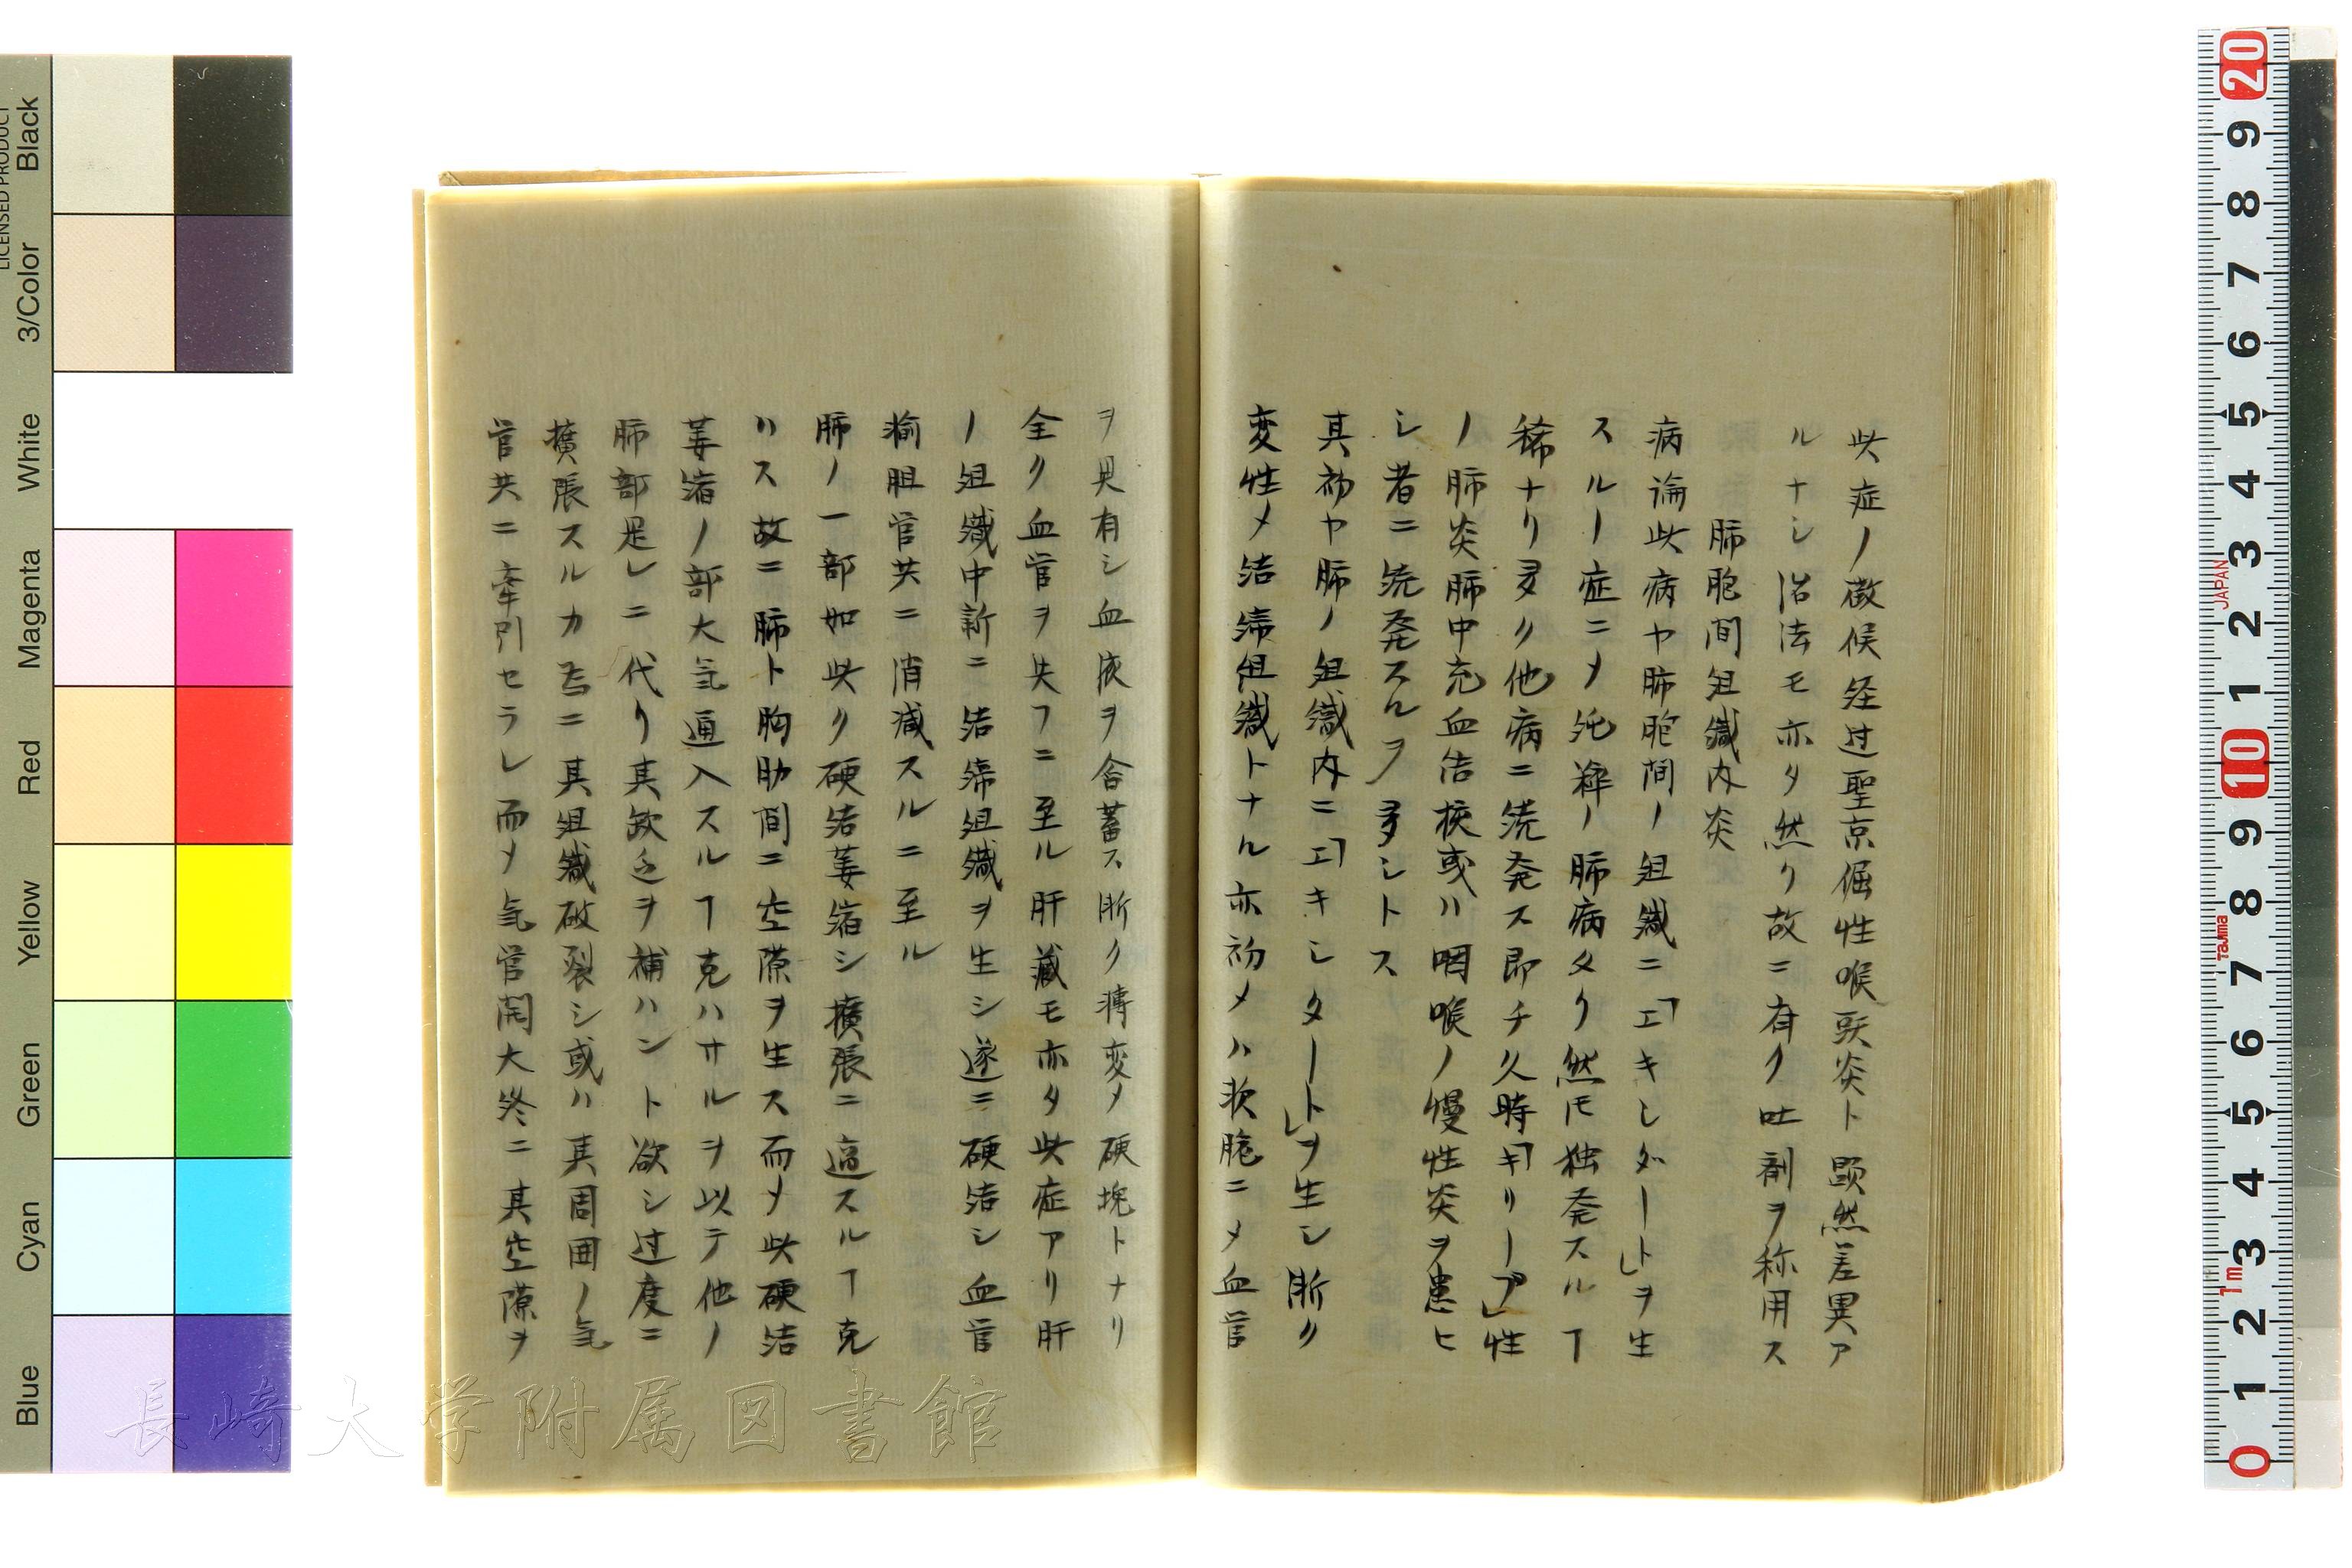 此症ノ徴候経过聖京倔性喉頭炎ト顕然差異ア
ルナシ治法モ亦タ然リ故ニ有ク吐剤ヲ称用ス
肺胞间组織内炎
病論此病ヤ肺胞間ノ组織ニ「エキシダート」ヲ生
スルノ症ニ〆純粋ノ肺病タリ然𪜈独発スルヿ
稀ナリ多クハ他病ニ続発ス即チ久時「キリーブ」性
ノ肺炎肺中充血结核或ハ咽喉ノ慢性炎ヲ患ヒ
シ者ニ続発スルヲ多シトス
其初ヤ肺ノ组織内ニ「エキシタート」ヲ生シ漸ク
変性〆结締组織トナル亦初メハ軟脆ニ〆血管
ヲ具有シ血液ヲ含蓄ス漸ク轉変〆硬塊トナリ
全ク血管ヲ失フニ至ル肝蔵モ亦タ此症アリ肝
ノ组織中新ニ结締组織ヲ生シ遂ニ硬结シ血管
輸胆管共ニ消滅スルニ至ル
肺ノ一部如此ク硬结萎縮シ擴張ニ適スルヿ克
ハス故ニ肺ト胸肋间ニ空隙ヲ生ス而〆此硬结
萎縮ノ部大気通入スルヿ克ハサルヲ以テ他ノ
肺部是レニ代リ其欽乏ヲ補ハント欲シ过度ニ
擴張スルカ為ニ其组織破裂シ或ハ其周囲ノ気
管共ニ牽引セラレ而〆気管開大終ニ其空隙ヲ
長崎大学附属図書館
LICENSED PRODUCT
Black
3/Color
White
Magenta
Red
Yellow
Green
Cyan
Blue
20
9
8
7
6
5
4
3
JAPAN
2
1
10
9
8
Tajima
7
6
5
4
3
1m
2
1
0